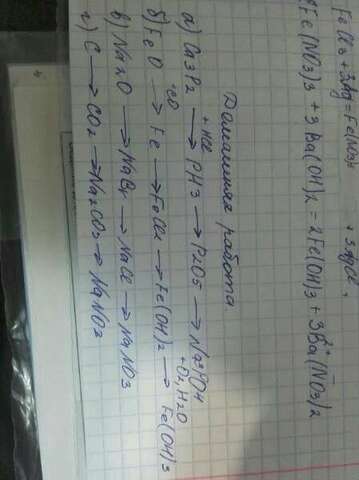 FeCl3 + 3Ag = Fe(NO3)3 + 3AgCl
2Fe(NO3)3 + 3Ba(OH)2 = 2Fe(OH)3 + 3Ba(NO3)2
Домашняя работа
а) Ca3P2 +HCl → PH3 → P2O5 → Na3PO4
б) FeO +CO → Fe → FeCl2 → Fe(OH)2 +O2,H2O → Fe(OH)3
в) Na2O → NaBr → NaCl → NaNO3
г) C → CO2 → Na2CO3 → NaNO3